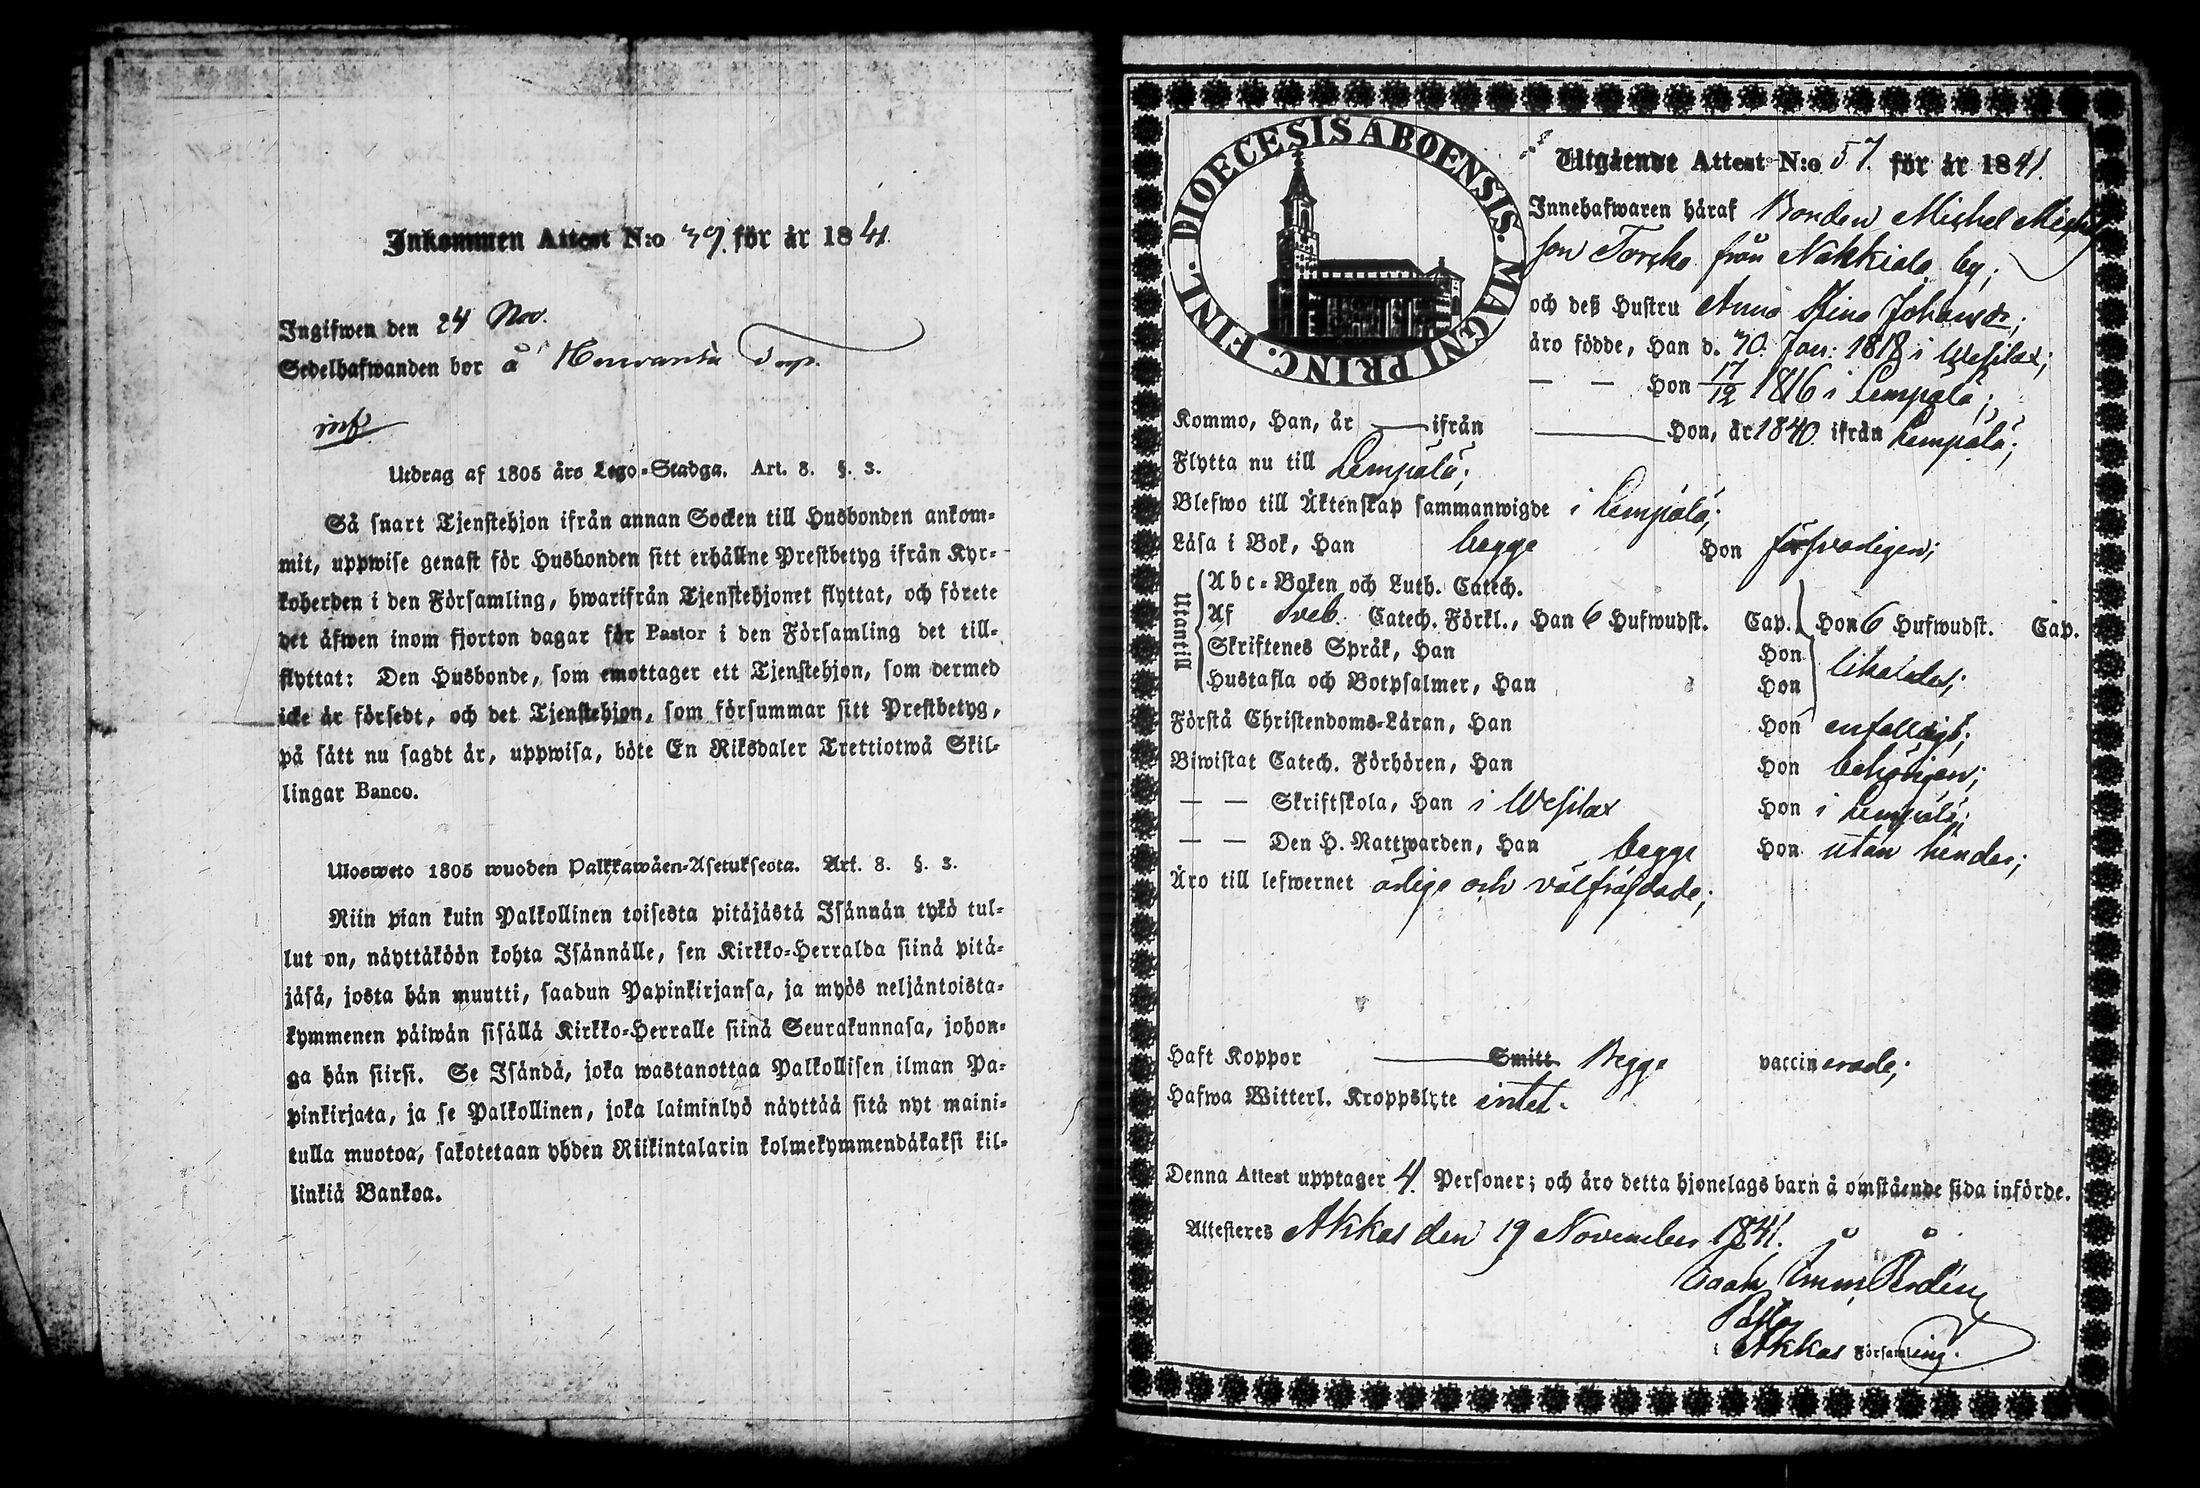 Inkommen Attest N:o 39. för år 1841
Ingifwen den 24 Nov.
Sedelhafwanden bor å
inf
Utdrag af 1805 års Lego-Stadga. Art. 8. §. 3.
Så snart Tjenstehjon ifrån annan Socken till Husbonden ankom-
mit, uppwise genast för Husbonden sitt erhållne Prestbetyg ifrån Kyr-
koherden i den Församling, hwarifrån Tjenstehjonet flyttat, och förete
det äfwen inom fjorton dagar för Pastor i den Församling det till-
flyttat: Den Husbonde, som emottager ett Tjenstehjon, som dermed
icke är försedt, och det Tjenstehjon, som försummar sitt Prestbetyg,
på sätt nu sagdt är, uppwisa, böte En Riksdaler Trettiotwå Skil-
lingar Banco.
Ulosweto 1805 wuoden Palkkawäen-Asetuksesta. Art. 8. §. 3.
Niin pian kuin Palkollinen toisesta pitäjästä Isännän tykö tul-
lut on, näyttäköön kohta Isännälle, sen Kirkko-Herralda siinä pitä-
jäsä, josta hän muutti, saadun Papinkirjansa, ja myös neljäntoista-
kymmenen päiwän sisällä Kirkko-Herralle siinä Seurakunnasa, johon-
ga hän siirsi. Se Isändä, joka wastanottaa Palkollisen ilman Pa-
pinkirjata, ja se Palkollinen, joka laiminlyö näyttää sitä nyt maini-
tulla muotoa, sakotetaan yhden Riikintalarin kolmekymmendäkaksi kil-
linkiä Bankoa.
DIOECESIS ABOENSIS. MAGNI PRINC. FINL.
Utgående Attest N:o 57. för år 1841.
Innehafwaren häraf Bonden Michel Michels
son Torcko från Nakkiala by;
och deß Hustru Anna Stina Johansdr;
äro födde, Han d. 30. Jan: 1818 i Wesilax;
— — Hon 17/12 1816 i Lempälä;
Kommo, Han, år — ifrån — Hon, år 1840 ifrån Lempälä;
Flytta nu till Lempälä;
Blefwo till Äktenskap sammanwigde i Lempälä;
Läsa i Bok, Han begge Hon försvarligen;
Utantill
Abc-Boken och Luth. Catech.
Af Sveb. Catech. Förkl., Han 6 Hufwudst. Cap. Hon 6 Hufwudst. Cap.
Skriftenes Språk, Han Hon
likaledes;
Hustafla och Botpsalmer, Han Hon
Förstå Christendoms-Läran, Han Hon enfalldigt;
Biwistat Catech. Förhören, Han Hon behörigen;
— — Skriftskola, Han i Wesilax Hon i Lempälä;
— — Den H. Nattwarden, Han begge Hon utan hinder;
Äro till lefwernet ärlige och välfräjdade;
Haft Koppor — Smitt Begge vaccinerade;
Hafwa Witterl. Kroppslyte intet.
Denna Attest upptager 4. Personer; och äro detta hjonelags barn å omstående sida införde.
Attesteres Akkas den 19 November 1841.
Isaak
Pastor
i Akkas Församling.